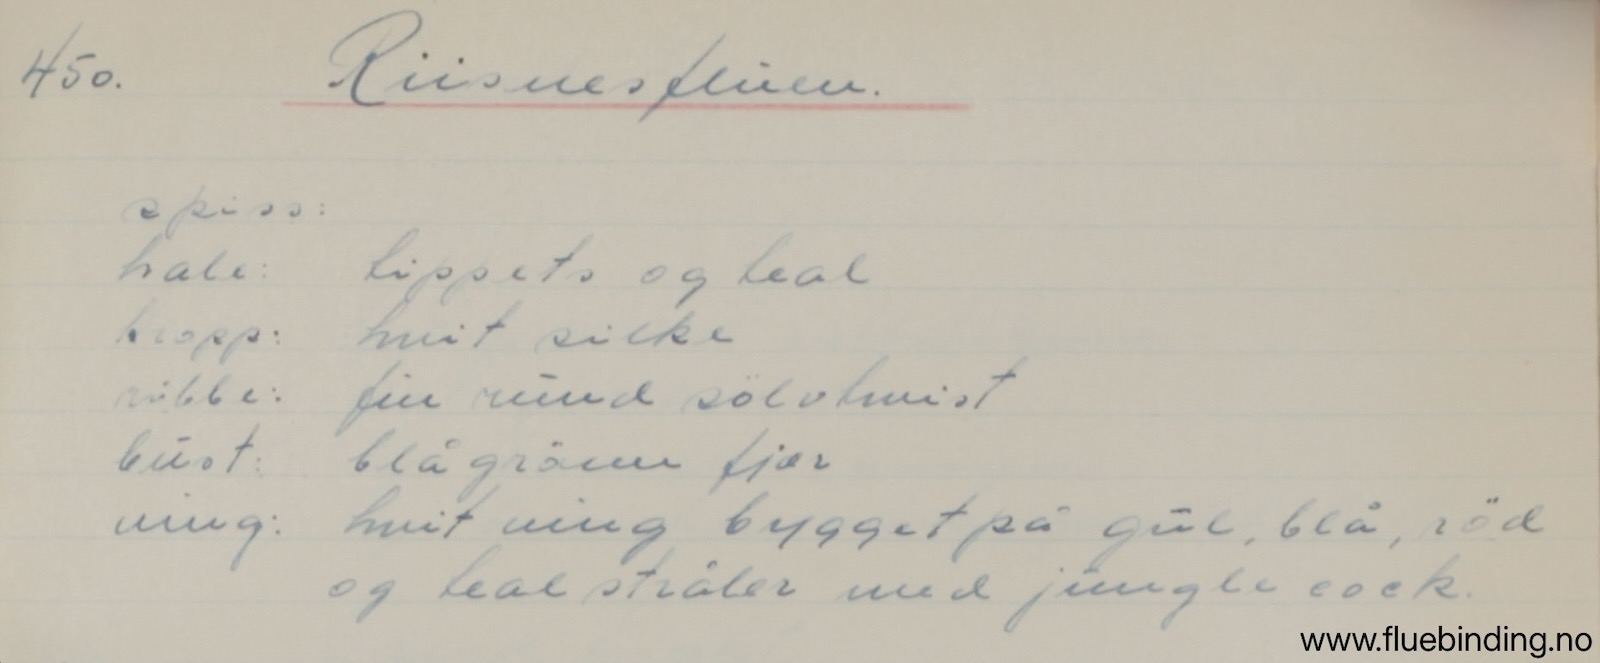 450. Riisnesfluen.
spiss:
hale: tippets og teal
kropp: hvit silke
ribbe: fin rund sölvtwist
bust: blågrönn fjær
ving: hvit ving bygget på gul, blå, röd
og teal stråler med jungle cock.
www.fluebinding.no